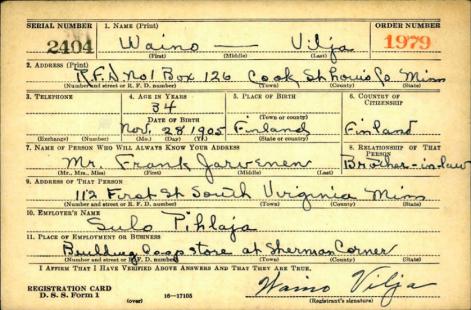 SERIAL NUMBER 1. NAME (Print) ORDER NUMBER
2404 Waino — Vilja 1979
(First) (Middle) (Last)
2. ADDRESS (Print)
R.F.D. No 1 Box 126 Cook St Louis Co. Minn
(Number and street or R. F. D. number) (Town) (County) (State)
3. TELEPHONE 4. AGE IN YEARS 5. PLACE OF BIRTH 6. COUNTRY OF CITIZENSHIP
34
DATE OF BIRTH (Town or county)
Nov. 28 1905 Finland Finland
(Exchange) (Number) (Mo.) (Day) (Yr.) (State or country)
7. NAME OF PERSON WHO WILL ALWAYS KNOW YOUR ADDRESS 8. RELATIONSHIP OF THAT PERSON
Mr. Frank Jarvenen Brother-in-law
(Mr., Mrs., Miss) (First) (Middle) (Last)
9. ADDRESS OF THAT PERSON
112 First St South Virginia Minn
(Number and street or R. F. D. number) (Town) (County) (State)
10. EMPLOYER'S NAME
Sulo Pihlaja
11. PLACE OF EMPLOYMENT OR BUSINESS
Coop store at Sherman Corner
(Number and street or R. F. D. number) (Town) (County) (State)
I AFFIRM THAT I HAVE VERIFIED ABOVE ANSWERS AND THAT THEY ARE TRUE.
REGISTRATION CARD
D. S. S. Form 1 (over) 16—17105 Waino Vilja
(Registrant's signature)